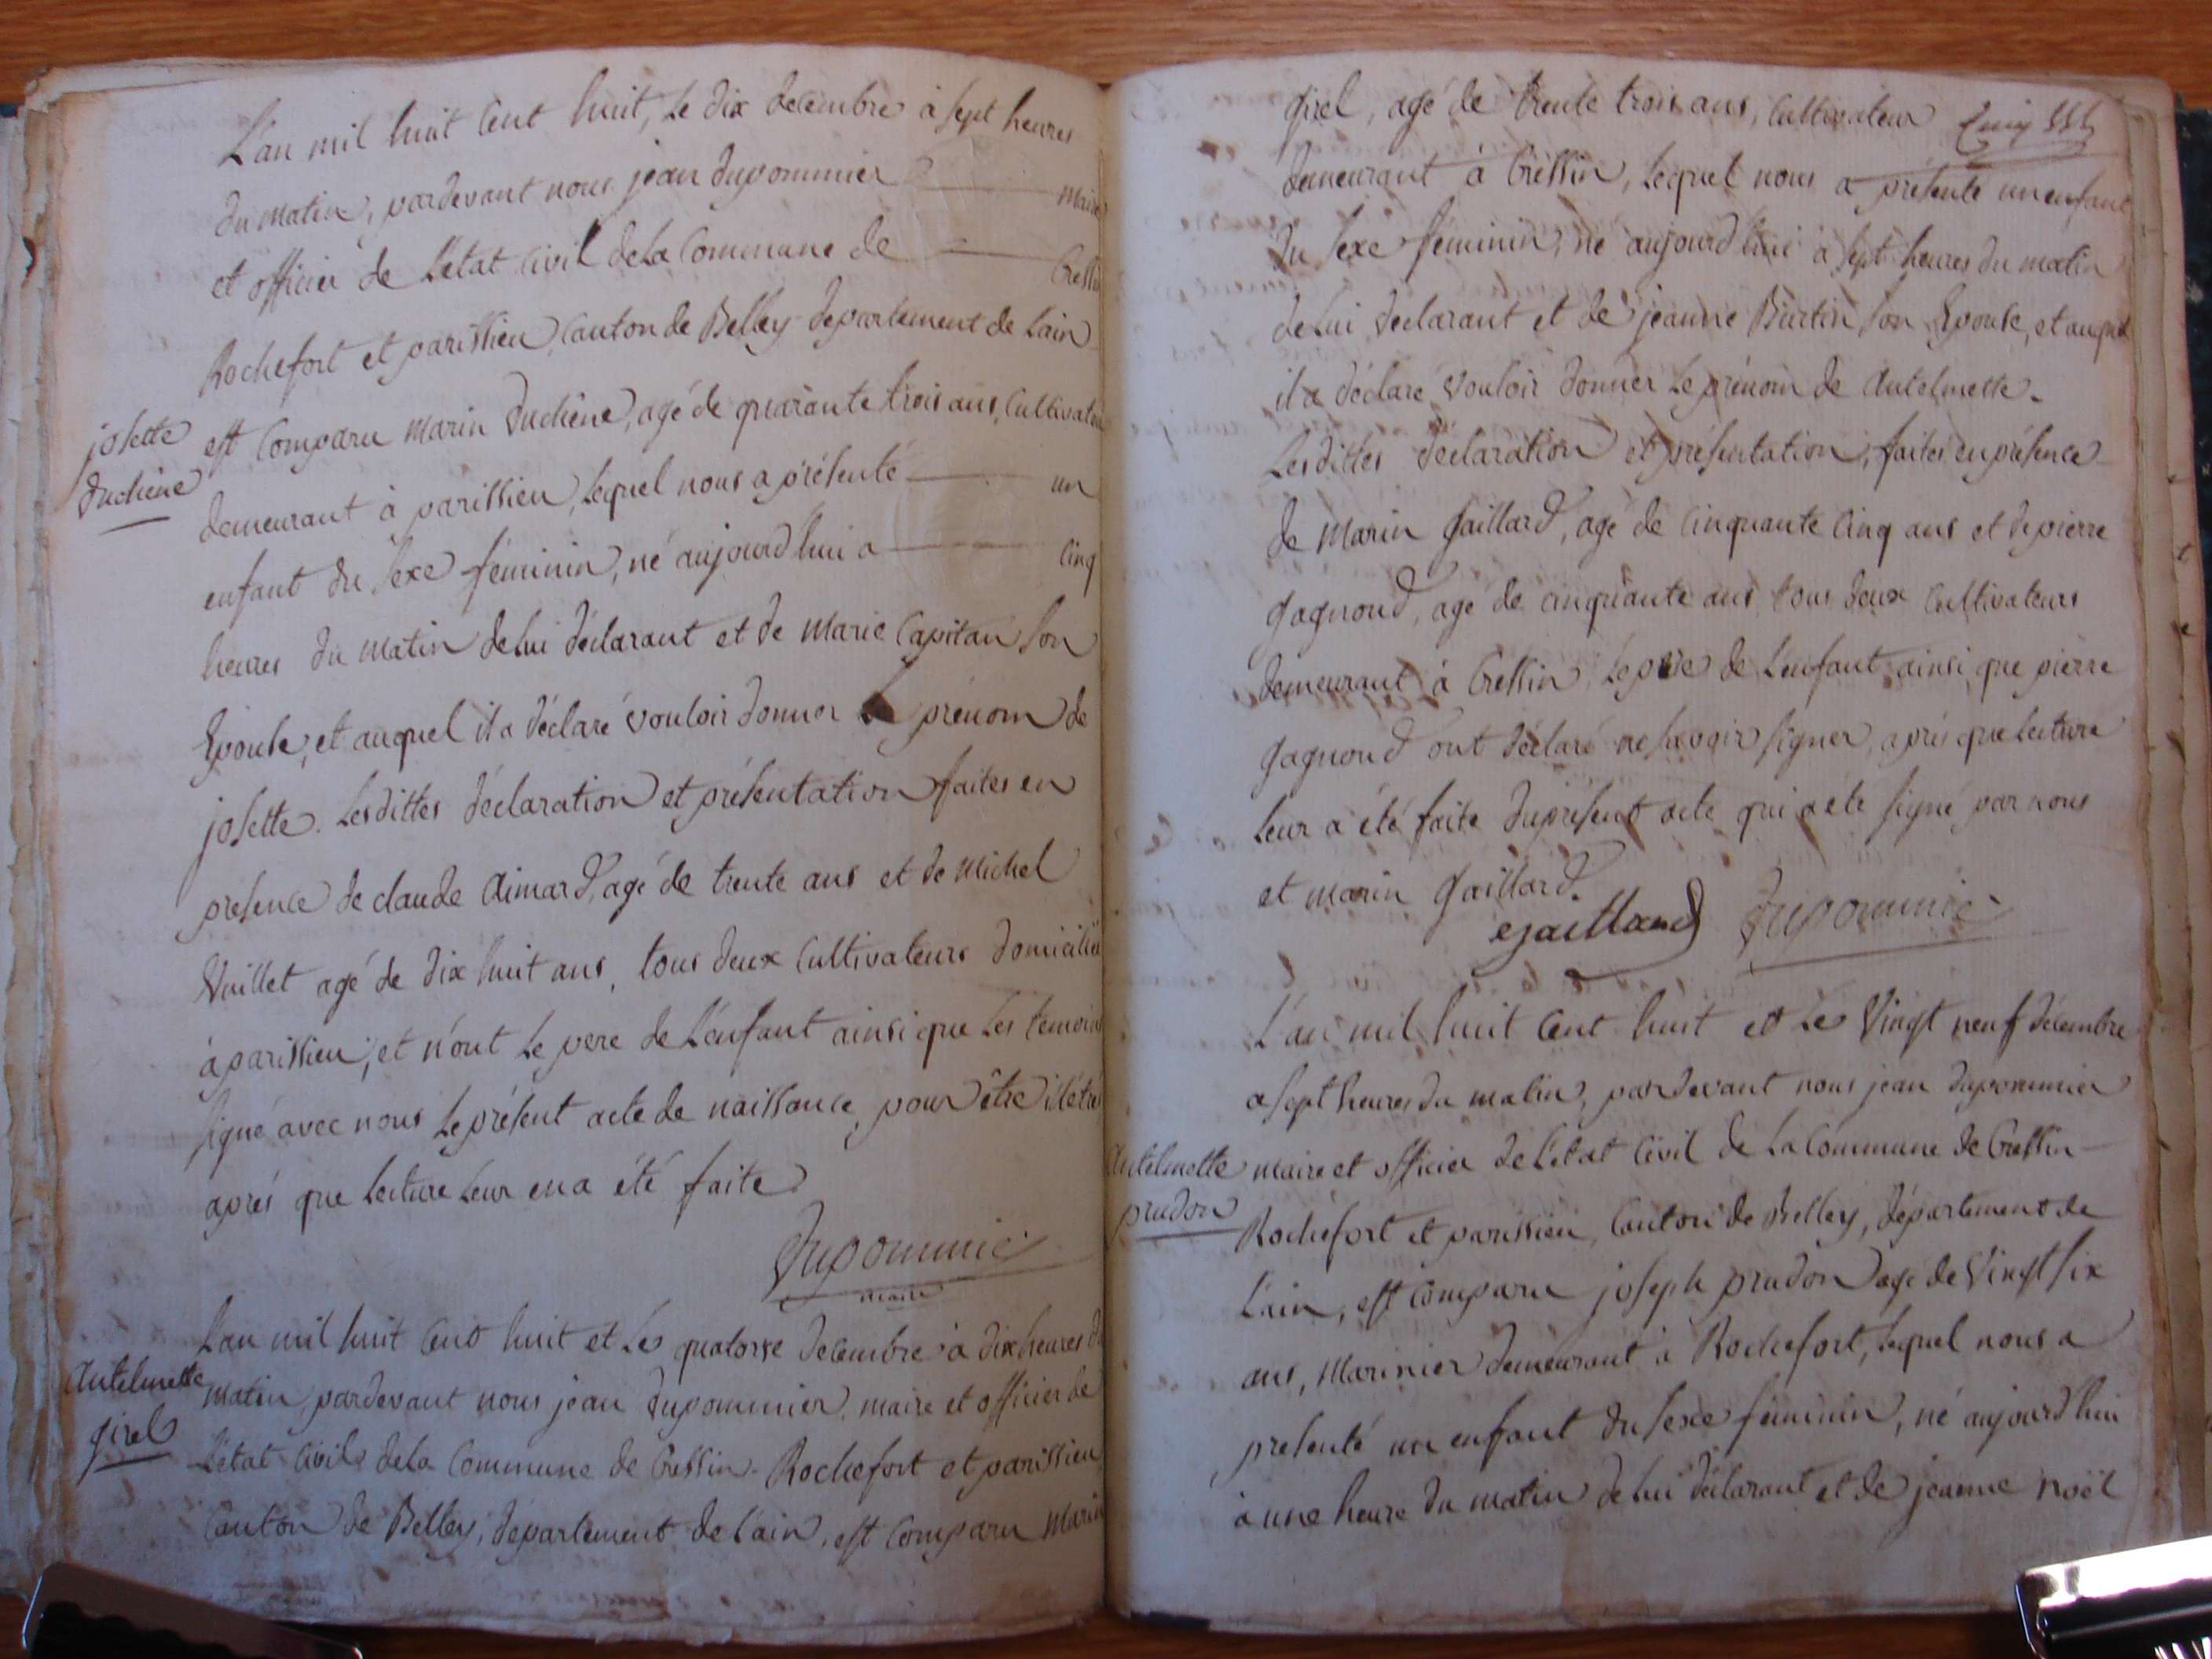 L'an mil huit Cent huit, le dix decembre à sept heures
du matin, pardevant nous jean dupommier — maire
et officier de L'etat Civil de La Commune de — Cressin
Rochefort et parissieu, Canton de Belley département de L'ain
josette
duchêne
est Comparu Marin Duchêne, agé de quarante trois ans, Cultivateur
demeurant à parissieu, Lequel nous a présenté — un
enfant du sexe féminin, né aujourd'hui a — Cinq
heures du matin de Lui déclarant et de Marie Capitan son
Epouse, et auquel il a déclaré vouloir donner Le prénom de
josette. Lesdittes déclaration et présentation faites en
présence de claude Aimard, agé de trente ans et de Michel
Vuillet agé de dix huit ans, tous deux Cultivateurs domiciliés
à parissieu, et n'ont Le pere de L'enfant ainsi que Les temoins
signé avec nous Le présent acte de naissance, pour être ilétrés
aprés que Lecture Leur en a été faite
Dupommie
maire
L'an mil huit Cent huit et Le quatorze decembre à dix heures du
Antelmette
girel
matin, pardevant nous jean dupommier, maire et officier de
L'etat Civil de La Commune de Cressin-Rochefort et parissieu
Canton de Belley, département de L'ain, est Comparu Marin
girel, agé de trente trois ans, Cultivateur
demeurant à Cressin, Lequel nous a présenté un enfant
du sexe féminin, né aujourd'hui à sept heures du matin
de Lui déclarant et de jeanne Burtin son Epouse, et auquel
il a déclaré vouloir donner Le prénom de Antelmette.
Lesdittes déclaration et présentation, faites en présence
de Marin Gaillard, agé de Cinquante Cinq ans et de pierre
gagnoud, agé de cinquante ans tous deux Cultivateurs
demeurant à Cressin, Le père de L'enfant ainsi que pierre
gagnoud ont déclaré ne savoir signer, aprés que Lecture
Leur a été faite du présent acte qui a été signé par nous
et marin gaillard.
gaillard Dupommie
L'an mil huit Cent huit et Le Vingt neuf décembre
a sept heures du matin, pardevant nous jean dupommier
Antelmette
pradon
maire et officier de L'etat Civil de La Commune de Cressin-
Rochefort et parissieu, Canton de Belley, département de
L'ain, est Comparu joseph pradon agé de Vingt six
ans, Marinier demeurant à Rochefort, Lequel nous a
présenté un enfant du sexe féminin, né aujourd'hui
à une heure du matin de Lui déclarant et de jeanne noël